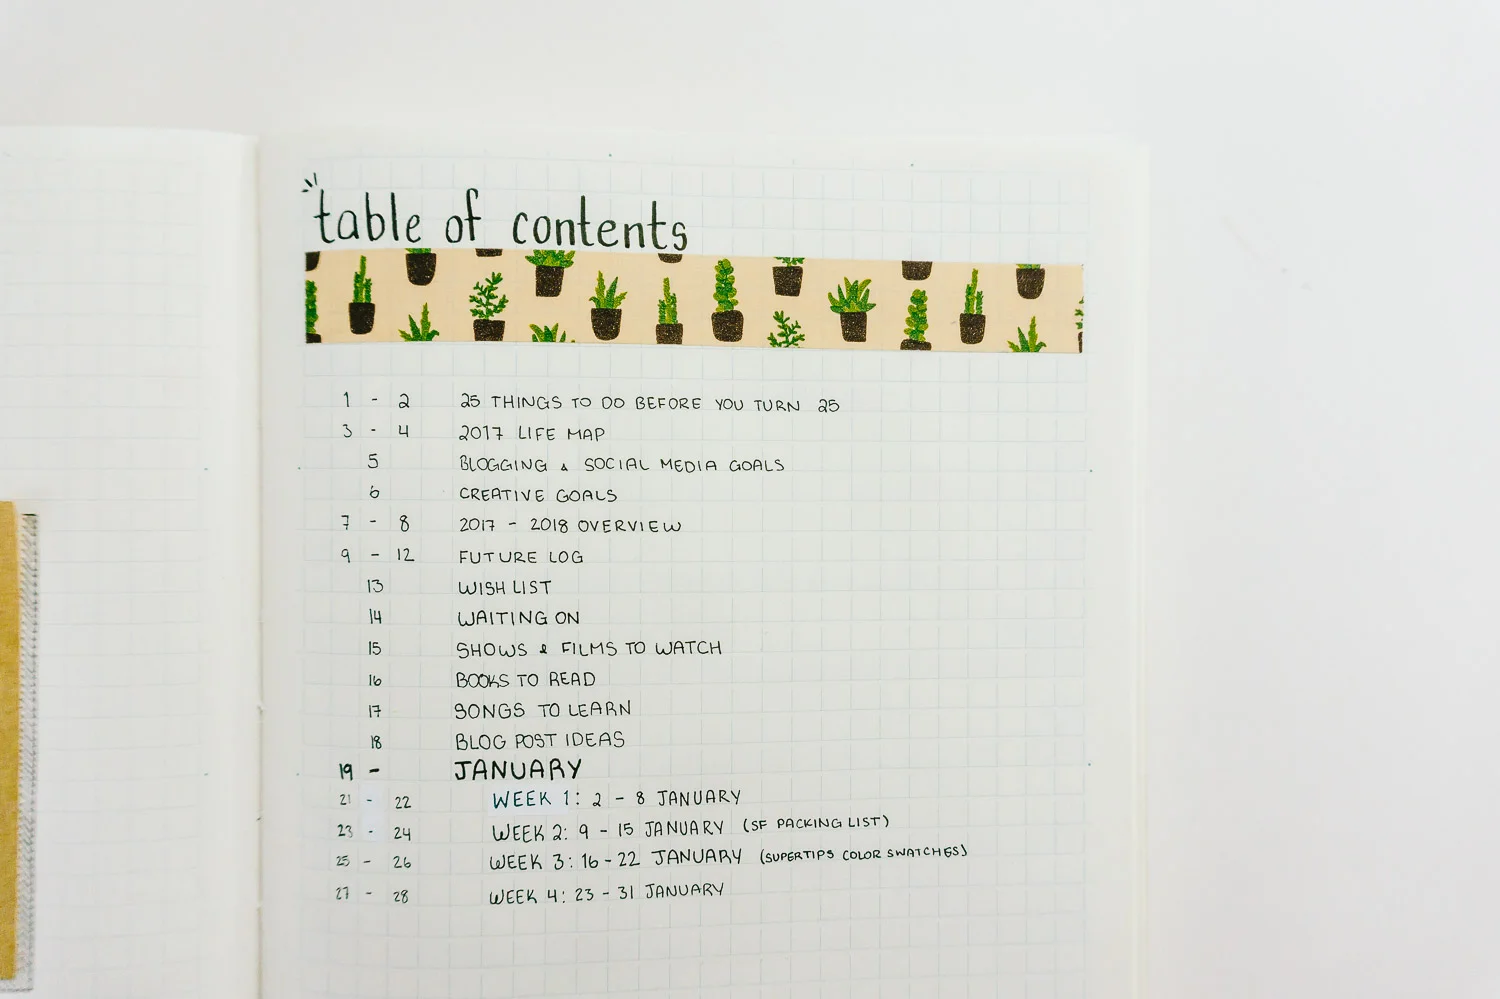 table of contents
1 - 2 25 THINGS TO DO BEFORE YOU TURN 25
3 - 4 2017 LIFE MAP
5 BLOGGING & SOCIAL MEDIA GOALS
6 CREATIVE GOALS
7 - 8 2017 - 2018 OVERVIEW
9 - 12 FUTURE LOG
13 WISH LIST
14 WAITING ON
15 SHOWS & FILMS TO WATCH
16 BOOKS TO READ
17 SONGS TO LEARN
18 BLOG POST IDEAS
19 - JANUARY
21 - 22 WEEK 1: 2 - 8 JANUARY
23 - 24 WEEK 2: 9 - 15 JANUARY (SF PACKING LIST)
25 - 26 WEEK 3: 16 - 22 JANUARY (SUPERTIPS COLOR SWATCHES)
27 - 28 WEEK 4: 23 - 31 JANUARY